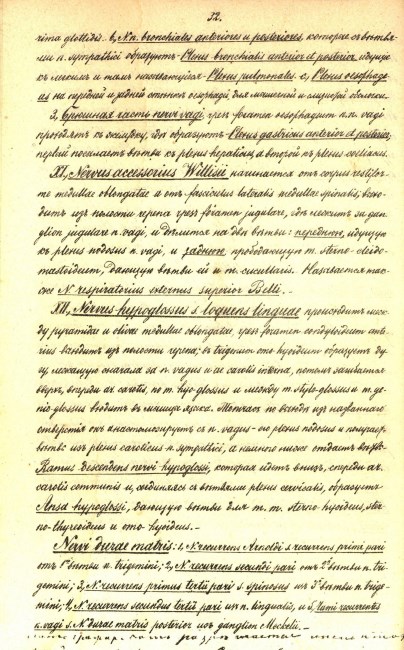 32.
rima glottidis. b, Nn. bronchiales anteriores et posteriores, которые съ вѣтвя-
ми n. sympathici образуютъ Plexus bronchialis anterior et posterior, идущіе
къ легкимъ и тамъ называющіяся Plexus pulmonales. c, Plexus oesophage-
us на передней и задней стѣнкѣ oesophagi, для мышечной и слизистой оболочки.
3, Брюшная часть nervi vagi, чрезъ foramen oesophageum n.n. vagi
проходятъ къ желудку, гдѣ образуютъ Plexus gastricus anterior et posterior;
первый посылаетъ вѣтви къ plexus hepaticus, а второй къ plexus coeliacus.
XI, Nervus accessorius Willisii начинается отъ corpus restifor-
me medullae oblongatae и отъ fasciculus lateralis medullae spinalis; вы
дитъ изъ полости черепа чрезъ foramen jugulare, гдѣ лежитъ за gan-
glion jugulare n. vagi, и дѣлится на двѣ вѣтви: переднюю, идущую
къ plexus nodosus n. vagi, и заднюю, прободающую m. sterno-cleido-
mastoideum, дающую вѣтви ей и m. cucullaris. Называется так-
же N. respiratorius externus superior Belli.
XII, Nervus hypoglossus s. loquens linguae происходитъ меж-
ду pyramidae и olivae medullae oblongatae, чрезъ foramen condyloideum ante-
rius выходитъ изъ полости черепа; въ trigonum omo-hyoideum образуетъ ду-
гу лежащую сначала за n. vagus и ar. carotis interna, потомъ загибается
вверхъ, впереди ar. carotis, по m. hyo-glossus и между m. stylo-glossus и m. ge-
nio-glossus входитъ въ мышцы языка. Тотчасъ по выходѣ изъ названнаго
отверстія онъ анастомозируетъ съ n. vagus его plexus nodosus и
вѣтвью изъ plexus caroticus n. sympathici, а немного ниже отдаетъ вѣтвь
Ramus descendens nervi hypoglossi, которая идетъ внизъ, спереди ar.
carotis communis и, соединяясь съ вѣтвями plexus cervicalis, образуетъ
Ansa hypoglossi, дающую вѣтви для m. m. sterno-hyoideus, ster-
no-thyreoideus и omo-hyoideus.
Nervi durae matris: 1, N. recurrens Arnoldi s. recurrens primi pari
отъ 1й вѣтви n. trigemini; 2, N. recurrens secundi pari отъ 2й вѣтви n. tri-
gemini; 3, N. recurrens primus tertii pari s. spinosus изъ 3й вѣтви n. trige-
mini; 4, N. recurrens secundus tertii pari изъ n. lingualis, и 5, rami recurrentes
n. vagi s. N. durae matris posterior изъ ganglion